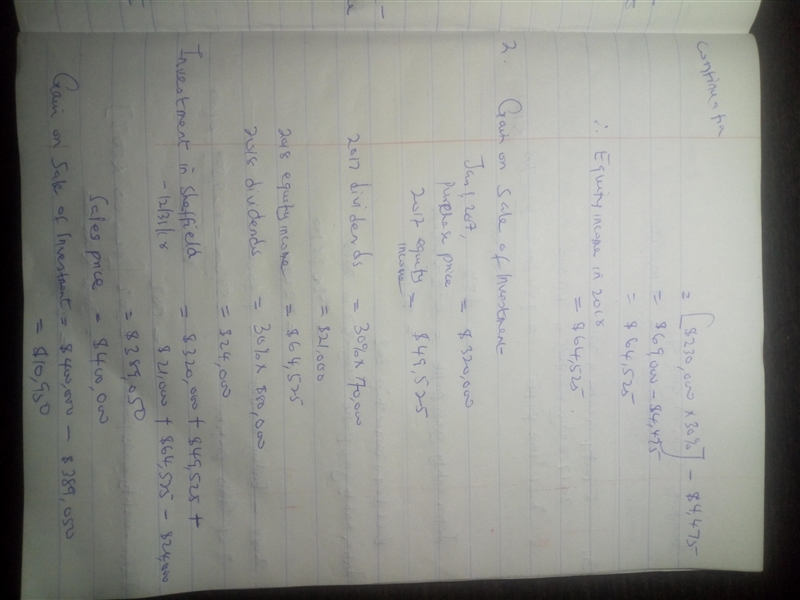 Continuation
= [$230,000 x 30%] - $4,475
= $69,000 - $4,475
= $64,525
∴ Equity income in 2018
= $64,525.
2. Gain on Sale of Investment
Jan 1, 2017,
purchase price = $320,000
2017 equity income = $49,525
2017 dividends = 30% x 70,000
= $21,000
2018 equity income = $64,525
2018 dividends = 30% x $80,000
= $24,000
Investment in Sheffield = $320,000 + $49,525 +
- 12/31/18 $21,000 + $64,525 - $24,000
= $389,050
Sales price = $400,000
Gain on Sale of Investment = $400,000 - $389,050
= $10,950